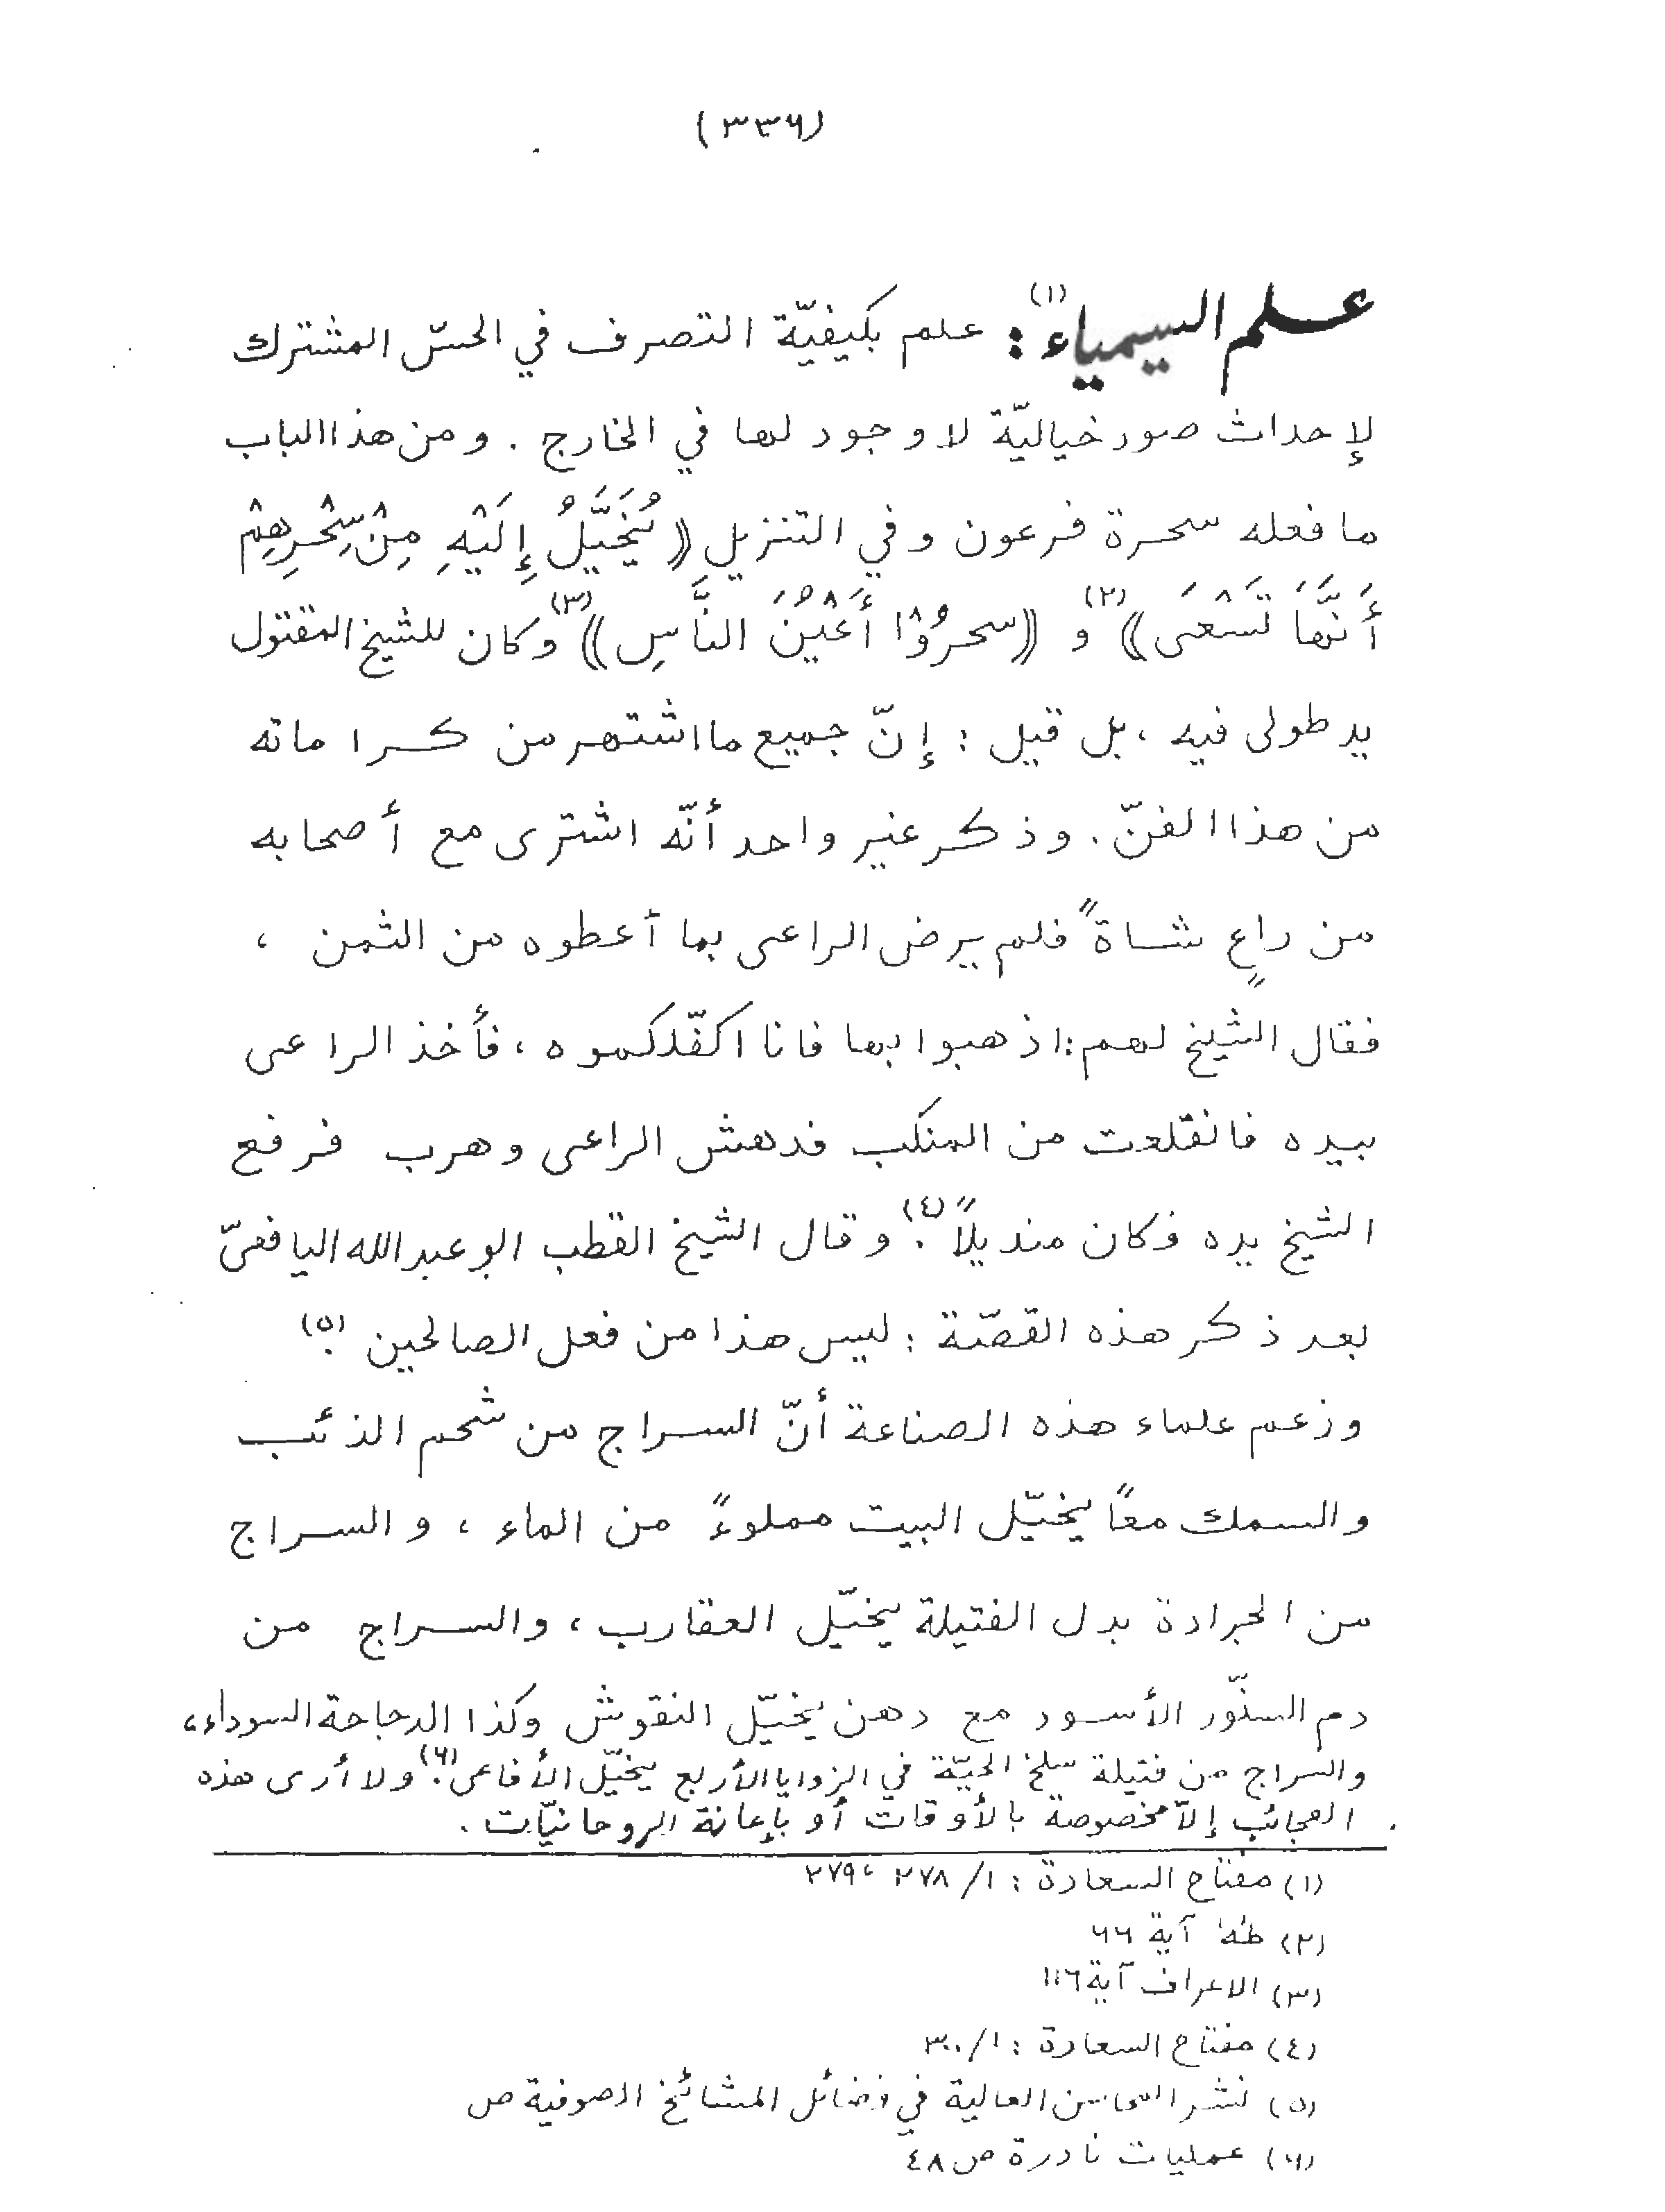 (٣٣٦)
علم السيمياء(١): علم بكيفيّة التصرف في الحسّ المشترك
لإحداث صور خياليّة لا وجود لها في الخارج . ومن هذا الباب
ما فعله سحرة فرعون وفي التنزيل ((يُخَيَّلُ إِلَيْهِ مِنْ سِحْرِهِمْ
أَنَّهَا تَسْعَى))(٢) و ((سحرُوْا أَعْيُنَ النَّاسِ))(٣) وكان للشيخ المقتول
يد طولى فيه ، بل قيل : إنّ جميع ما اشتهر من كراماته
من هذا الفنّ . وذكر غير واحد أنّه اشترى مع أصحابه
من راعٍ شاةً فلم يرض الراعى بما أعطوه من الثمن ،
فقال الشيخ لهم : اذهبوا بها فانا اكفّلكموه ، فأخذ الراعى
بيده فانقلعت من المنكب فدهش الراعى وهرب فرفع
الشيخ يده فكان منديلاً(٤). وقال الشيخ القطب ابو عبد الله اليافعىّ
بعد ذكر هذه القصّة : ليس هذا من فعل الصالحين (٥).
وزعم علماء هذه الصناعة أنّ السراج من شحم الذئب
والسمك معًا يخيّل البيت مملوءً من الماء ، والسراج
من الجرادة بدل الفتيلة يخيّل العقارب ، والسراج من
دم السنّور الأسود مع دهن يخيّل النقوش وكذا الدجاجة السوداء،
والسراج من فتيلة سلخ الحيّة في الزوايا الأربع يخيّل الأفاعى(٦). ولا أرى هذه
العجائب إلاّ مخصوصة بالأوقات أو بإعانة الروحانيّات .
(١) مفتاح السعادة : ١/ ٢٧٨ ، ٢٧٩
(٢) طه آية ٦٦
(٣) الاعراف آية ١١٦
(٤) مفتاح السعادة : ١/٣٠٠
(٥) نشر المحاسن العالية في فضائل المشائخ الصوفية ص
(٦) عمليات نادرة ص ٤٨